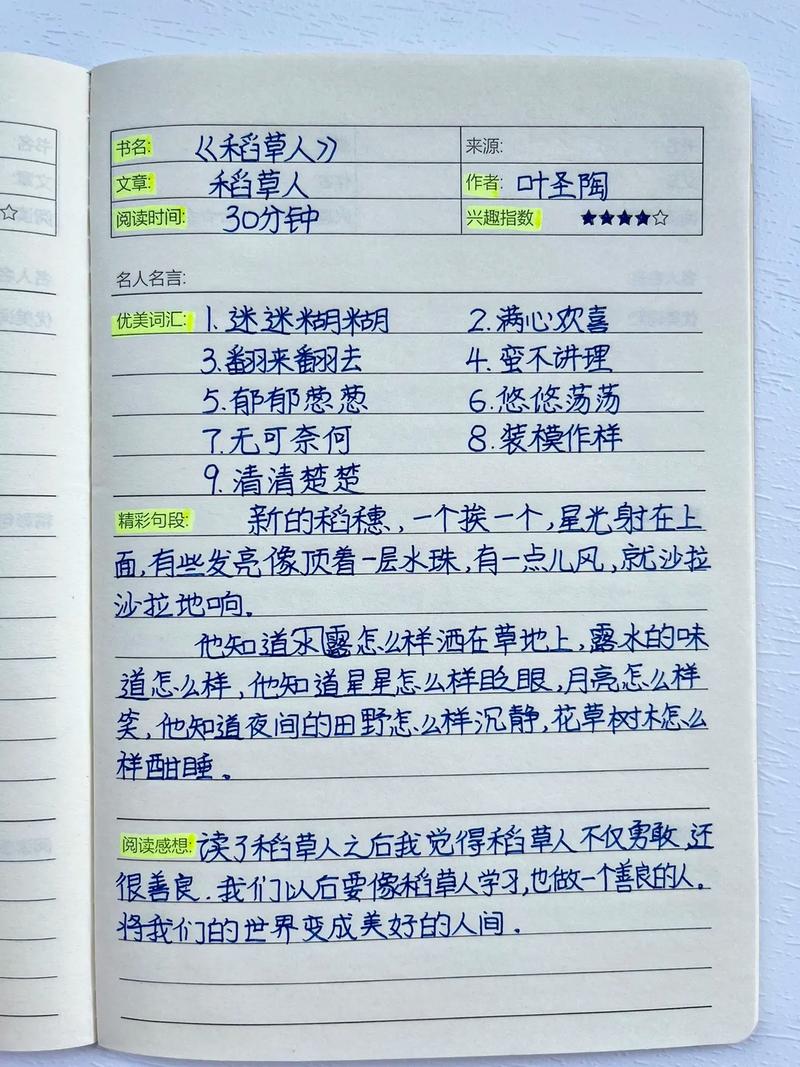 书名: 《稻草人》 来源:
文章: 稻草人 作者: 叶圣陶
阅读时间: 30分钟 兴趣指数 ★★★★☆
名人名言:
优美词汇: 1. 迷迷糊糊 2. 满心欢喜
3. 翻来翻去 4. 蛮不讲理
5. 郁郁葱葱 6. 悠悠荡荡
7. 无可奈何 8. 装模作样
9. 清清楚楚
精彩句段: 新的稻穗,一个挨一个,星光射在上
面,有些发亮像顶着一层水珠,有一点儿风,就沙拉
沙拉地响。
他知道露怎么样洒在草地上,露水的味
道怎么样,他知道星星怎么样眨眼,月亮怎么样
笑,他知道夜间的田野怎么样沉静,花草树木怎么
样酣睡。
阅读感想: 读了稻草人之后我觉得稻草人不仅勇敢,还
很善良.我们以后要像稻草人学习,也做一个善良的人。
将我们的世界变成美好的人间.